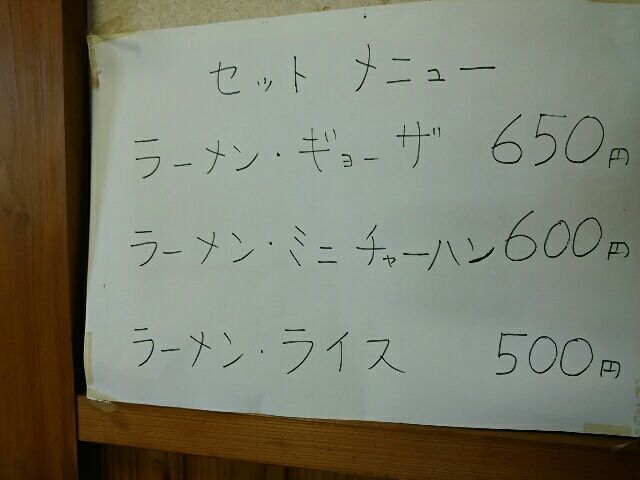 セット メニュー
ラーメン・ギョーザ 650円
ラーメン・ミニチャーハン 600円
ラーメン・ライス 500円